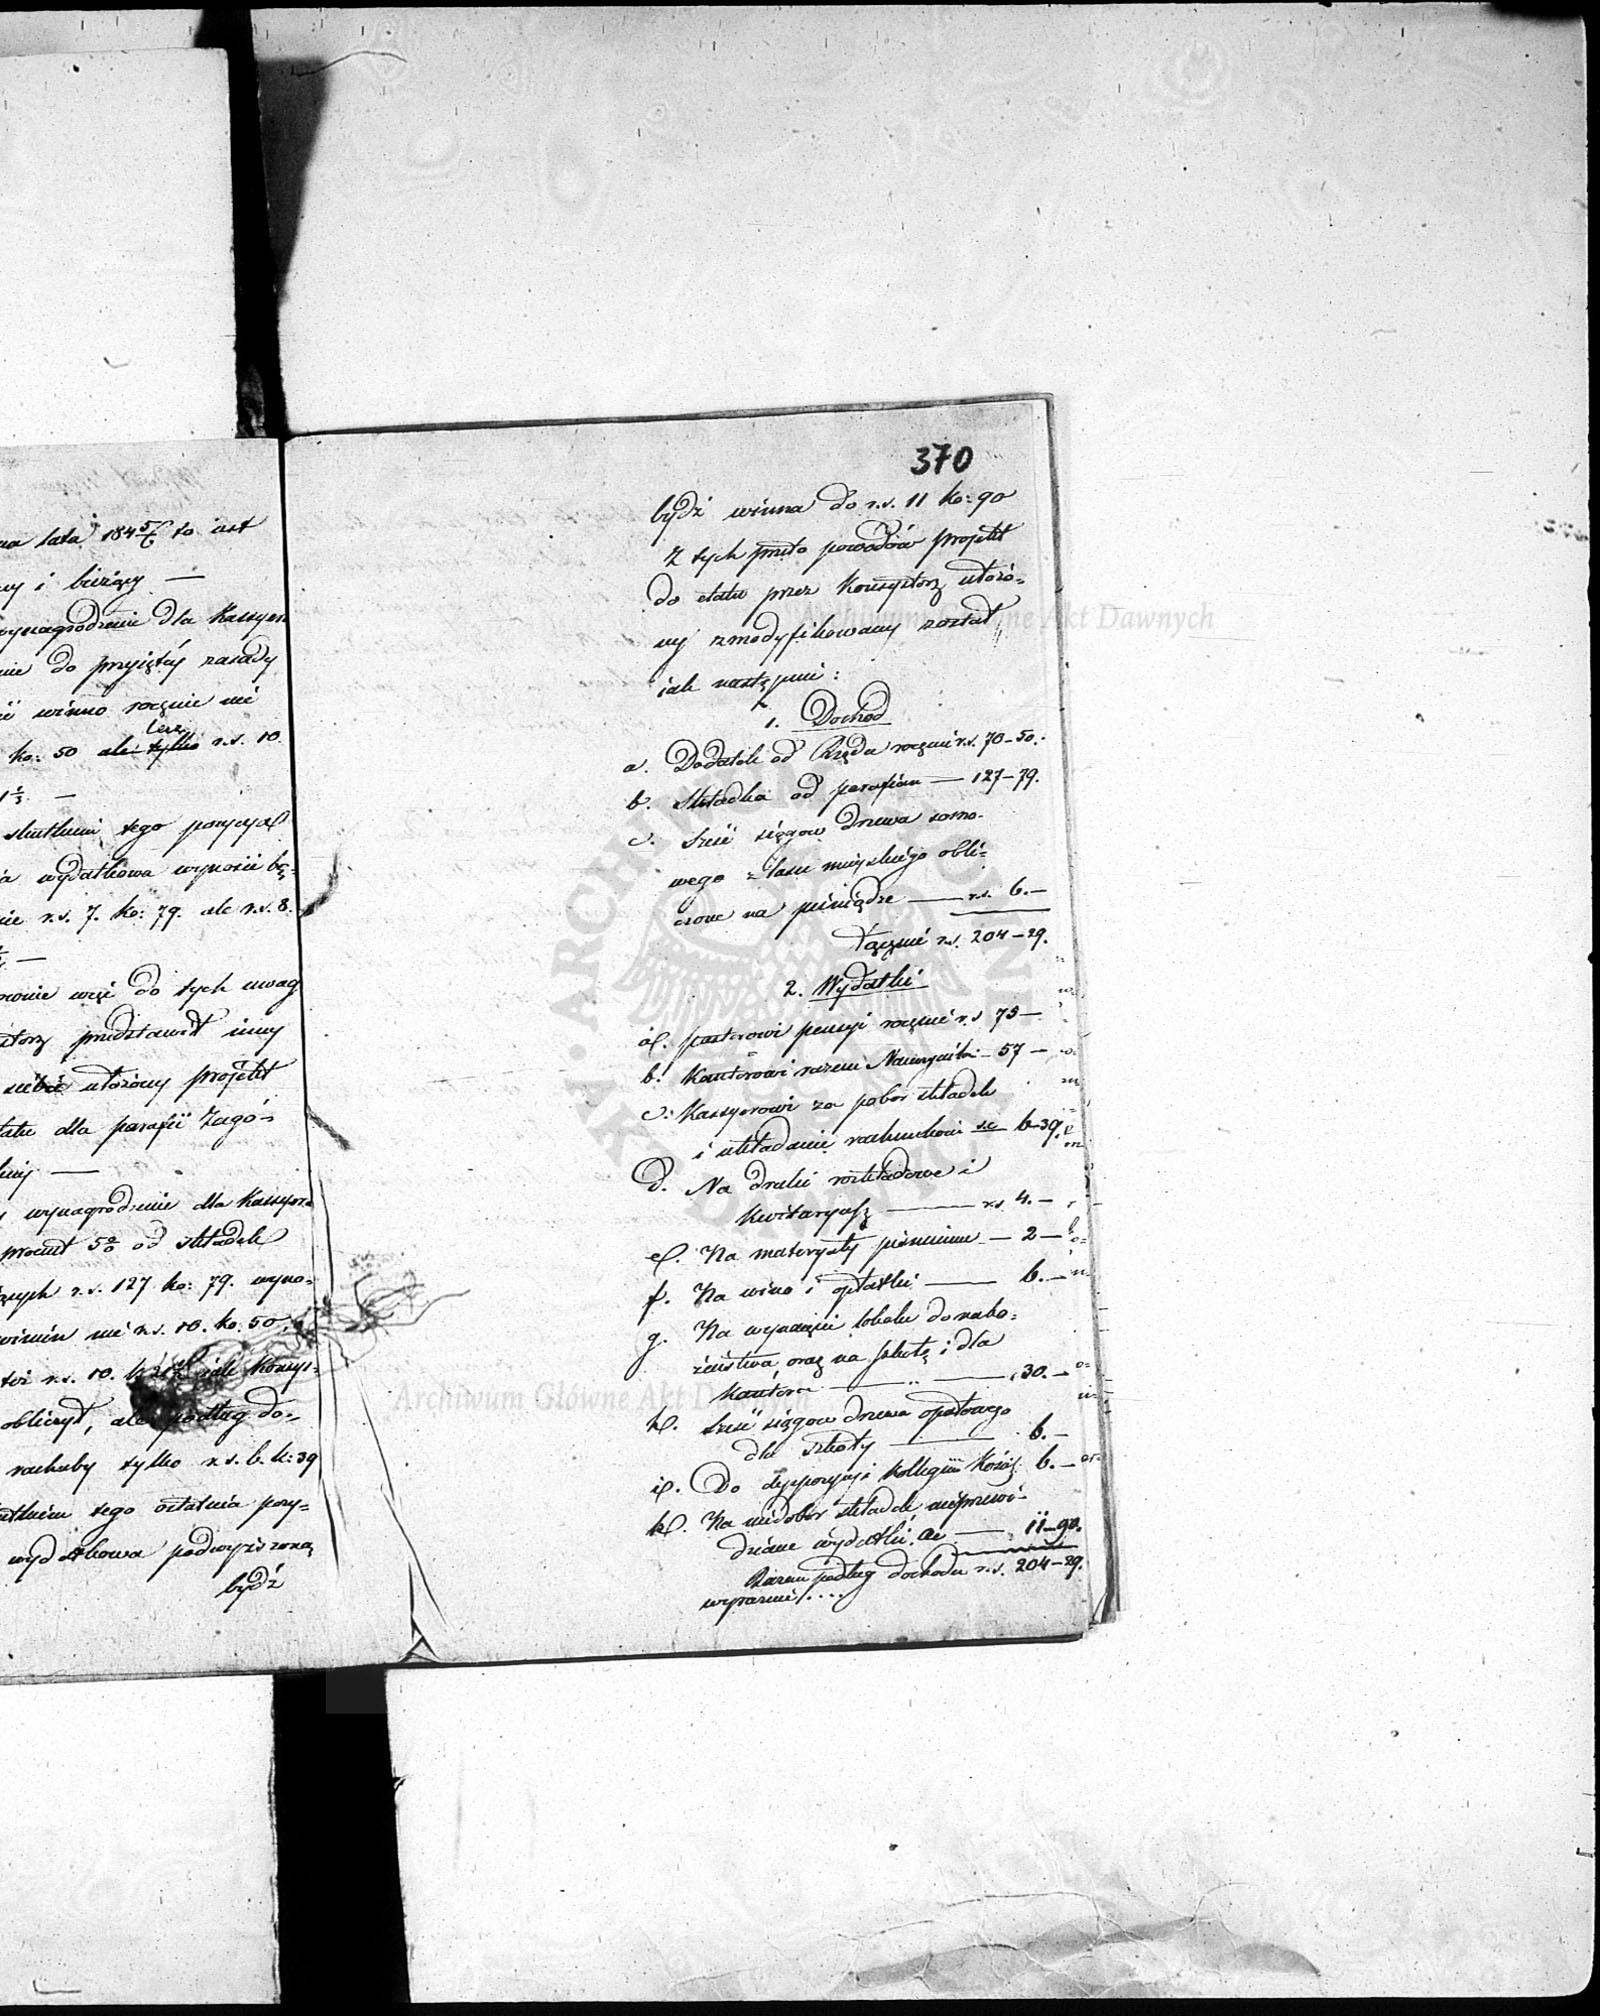 na lata 184 5/6 to jest
ny i bieżący —
wynagrodzenie dla Kassyera
nie do przyjętéj zasady
winno rocznie nie
ko: 50 ale tylko lecz r.s. 10.
1 1/3 —
skutkiem tego pozycya
a wydatkowa wynosić bę=
nie r.s. 7. ko: 79. ale r.s. 8.
—
do tych uwag
przedstawił inny
siebie ułożony projekt
tatu dla parafii Zagó=
—
wynagrodzenie dla Kassyera
procent 5% od składek
r.s. 127 ko: 79. wyno=
winien nie r.s. 10. ko: 50,
też r.s. 10. jak Konsy=
obliczył, ale podług do=
rachuby tylko r.s. 6. k: 39
skutkiem tego ostatnia pozy=
wydatkowa podwyższoną
bydź
370
bydź winna do r.s. 11 ko: 90
Z tych przeto powodów projekt
do etatu przez Konsystorz ułożo=
ny zmodyfikowany został
jak następuie:
1. Dochod
a. Dodatek od Rządu rocznie r.s. 70–50.
b. Składka od parafian — 127–79.
c. Sześć sięgow drzewa somo-
wego z lasu mieyskiego obli=
czone na pieniądze — r.s. 6.—
Łącznie r.s. 204–29.
2. Wydatki
a. pastorowi pensyi rocznie r.s 75 —
b. Kantorowi razem Nauczyciel: – 57 –
c. Kassyerowi za pobor składek
i składanie rachunkow 6–39.
d. Na druki rozkładowe i
Kwitaryusz — r.s. 4. —
e. Na materyały piśmienne — 2 —
f. Na wino i opłatki — 6. —
g. Na wynajęcie lokalu do nabo=
żeństwa oraz na szkołę i dla
Kantora — „ — 30. —
h. Sześć sięgow drzewa opałowego
dla szkoły — 6. —
i. Do dyspozycyi Kollegium Kościel: 6. —
k. Na niedobor składek nieprzewi-
dziane wydatki — 11–90.
Razem podług dochodu r.s. 204–29.
wyraźnie . . . .
Archiwum Główne Akt Dawnych
Archiwum Główne Akt Dawnych
ARCHIWUM GŁÓWNE AKT DAWNYCH